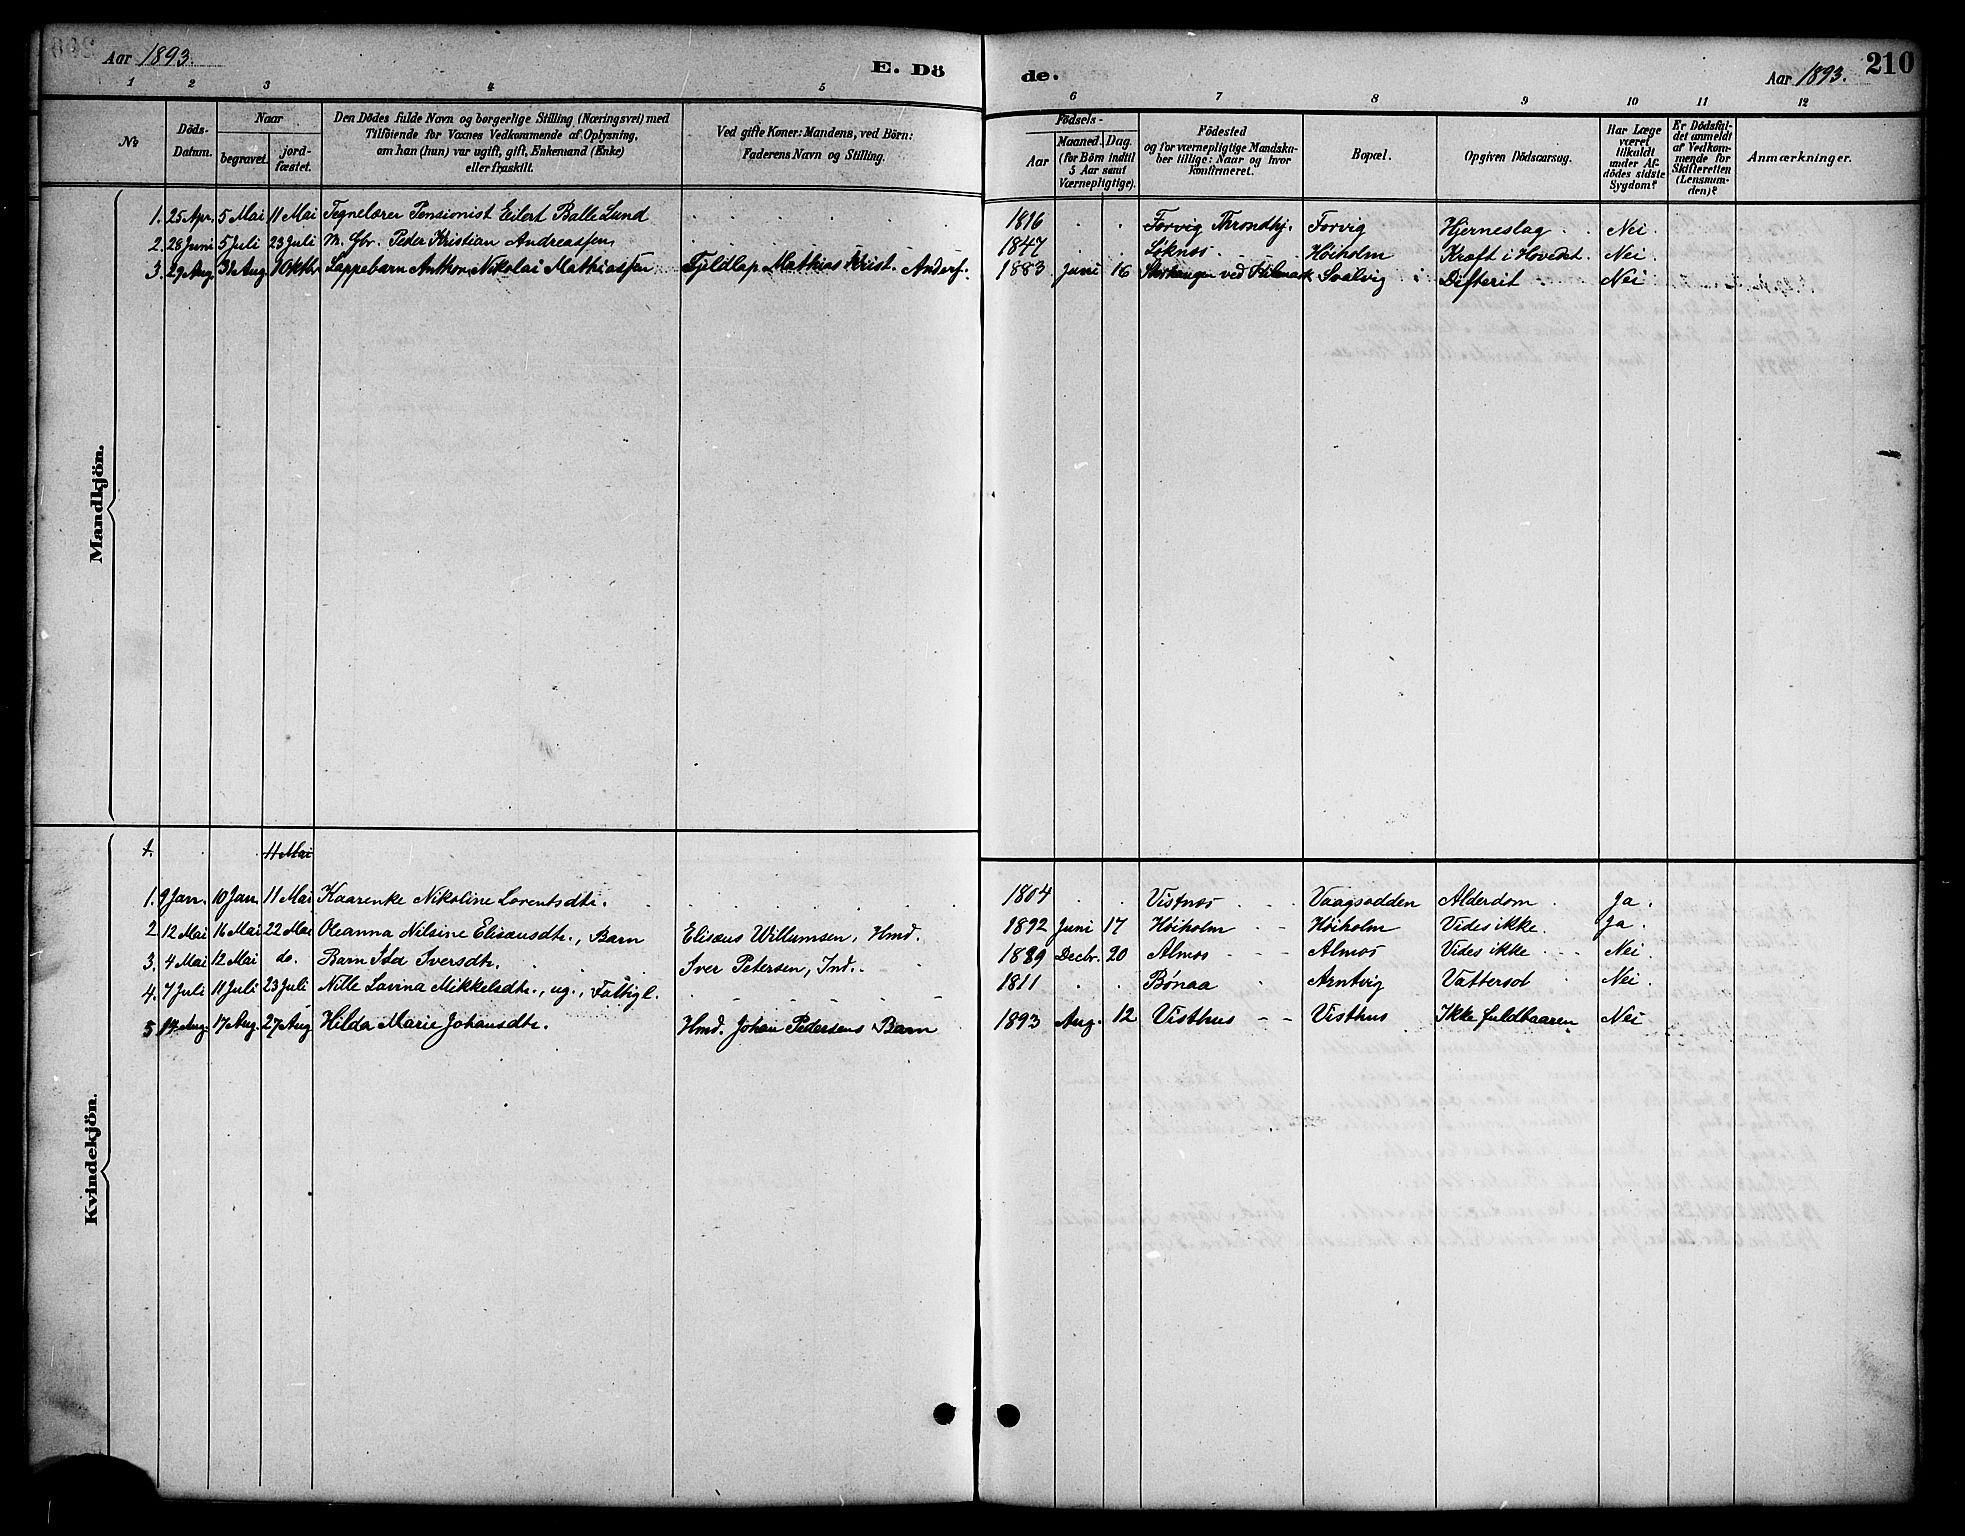 Aar 1893. E. Dö de. Aar 1893. 210
1 2 3 4 5 6 7 8 9 10 11 12
No
Döds-Datum.
Naar
begravet.
jord-fæstet.
Den Dödes fulde Navn og borgerlige Stilling (Næringsvei) med
Tilföiende for Voxnes Vedkommende af Oplysning,
om han (hun) var ugift, gift, Enkemand (Enke)
eller fraskilt.
Ved gifte Koner: Mandens, ved Börn:
Faderens Navn og Stilling.
Födsels-
Aar
Maaned. Dag.
(for Börn indtil
5 Aar samt
Værnepligtige).
Födested
og for værnepligtige Mandska-
ber tillige: Naar og hvor
konfirmeret.
Bopæl.
Opgiven Dödsaarsag.
Har Læge
været
tilkaldt
under Af-
dödes sidste
Sygdom?
Er Dödsfal-
det anmeldt
af Vedkom-
mende for
Skifteretten
(Lensman-
den)?
Anmærkninger.
Mandkjön.
1. 25 Apr. 5 Mai 11 Mai Tegnelærer Pensionist Eilert Balle Lund 1816 Forvig Throndhj. Forvig Hjerneslag Nei
2. 28 Juni 5 Juli 23 Juli m. Gbr. Peder Kristian Andreassen 1847 Søknes Høiholm Kræft i Hovedet. Nei.
3. 29 Aug. 31 Aug 1 Oktbr Lappebarn Anthon Nikolai Mathiassen Fjeldlap Mathias Krist. Anders. 1883 Juni 16 ved Svalvig Difterit Nei
Kvindekjön.
1. 11 Mai
1. 9 Jan. 10 Jan. 11 Mai Kaarenke Nikoline Lorentsdtr. 1804 Vistnes Vaagsodden Alderdom Ja.
2 12 Mai 16 Mai 22 Mai Oleanna Nilsine Elisæusdtr., Barn Elisæus Willumsen, Hmd. 1892 Juni 17 Høiholm Høiholm Vides ikke. Ja.
3. 4 Mai 12 Mai do. Barn Ida Iversdtr. Iver Petersen, Ind. 1889 Decbr. 20 Almos Almos Vides ikke Nei.
4. 7 Juli 11 Juli 23 Juli Nille Lavina Mikkelsdtr., ug., Fattigl. 1811 Bønaa Arntvig Vattersot Nei.
5 14 Aug. 17 Aug. 27 Aug Hilda Marie Johansdtr. Hmd. Johan Pedersens Barn 1893 Aug. 12 Visthus Visthus Ikke fuldbaaren Nei